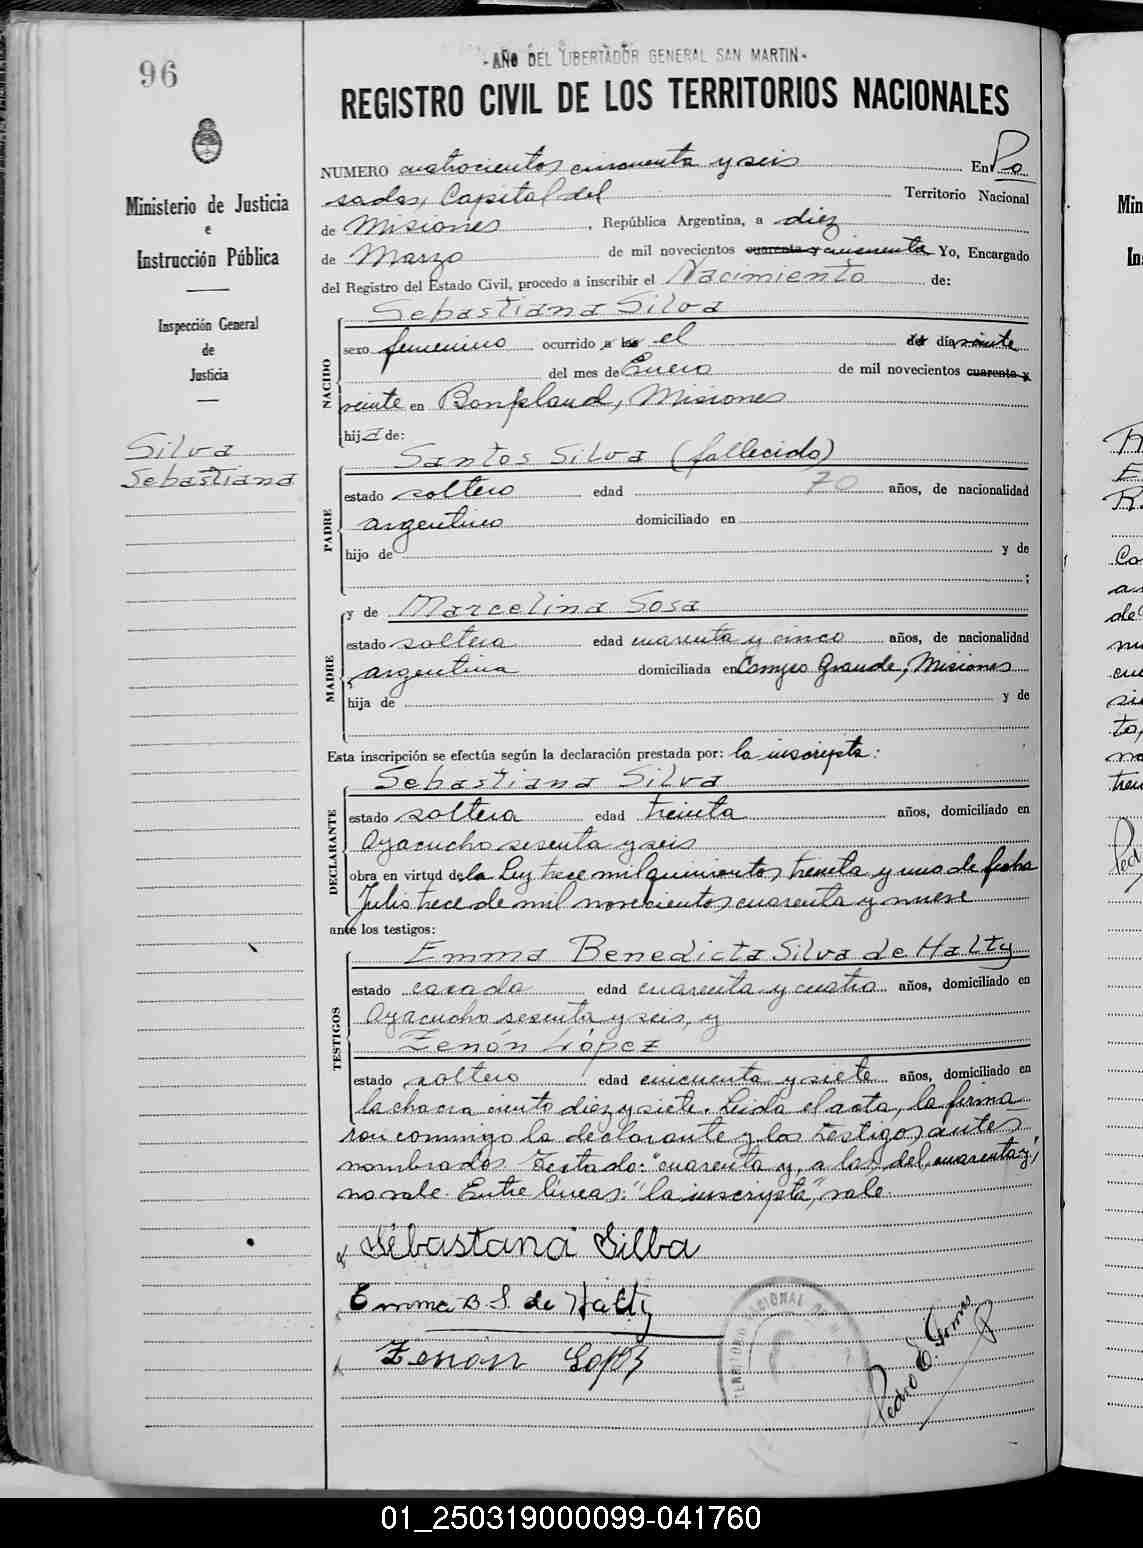 96
- AÑO DEL LIBERTADOR GENERAL SAN MARTIN -
REGISTRO CIVIL DE LOS TERRITORIOS NACIONALES
Ministerio de Justicia
e
Instrucción Pública
Inspección General
de
Justicia
Silva
Sebastiana
NUMERO cuatrocientos cincuenta y seis En Po
sadas, Capital del Territorio Nacional
de Misiones, República Argentina, a diez
de Marzo de mil novecientos cuarenta y cincuenta Yo, Encargado
del Registro del Estado Civil, procedo a inscribir el Nacimiento de:
Sebastiana Silva
NACIDO
sexo femenino ocurrido a las el del día veinte
del mes de Enero de mil novecientos cuarenta y
veinte en Bonpland, Misiones
hija de:
Santos Silva (fallecido)
PADRE
estado soltero edad 70 años, de nacionalidad
argentino domiciliado en
hijo de y de
;
y de Marcelina Sosa
MADRE
estado soltera edad cuarenta y cinco años, de nacionalidad
argentina domiciliada en Campo Grande, Misiones
hija de y de
Esta inscripción se efectúa según la declaración prestada por: la inscripta:
Sebastiana Silva
DECLARANTE
estado soltera edad treinta años, domiciliado en
Ayacucho sesenta y seis
obra en virtud de la Ley trece mil quinientos treinta y uno de fecha
Julio trece de mil novecientos cuarenta y nueve
ante los testigos:
Emma Benedicta Silva de Halty
TESTIGOS
estado casada edad cuarenta y cuatro años, domiciliado en
Ayacucho sesenta y seis, y
Zenón López
estado soltero edad cincuenta y siete años, domiciliado en
la chacra ciento diez y siete. Leida el acta, la firma
ron conmigo la declarante y los testigos antes
nombrados Testado: "cuarenta y, a las, del, cuarenta y",
no vale. Entre lineas: "la inscripta", vale.
Sebastana Silba
Emma B S. de Halty
Zenón Lopez
TERRITORIO NACIONAL DE
Pedro E. Gomez
01_250319000099-041760